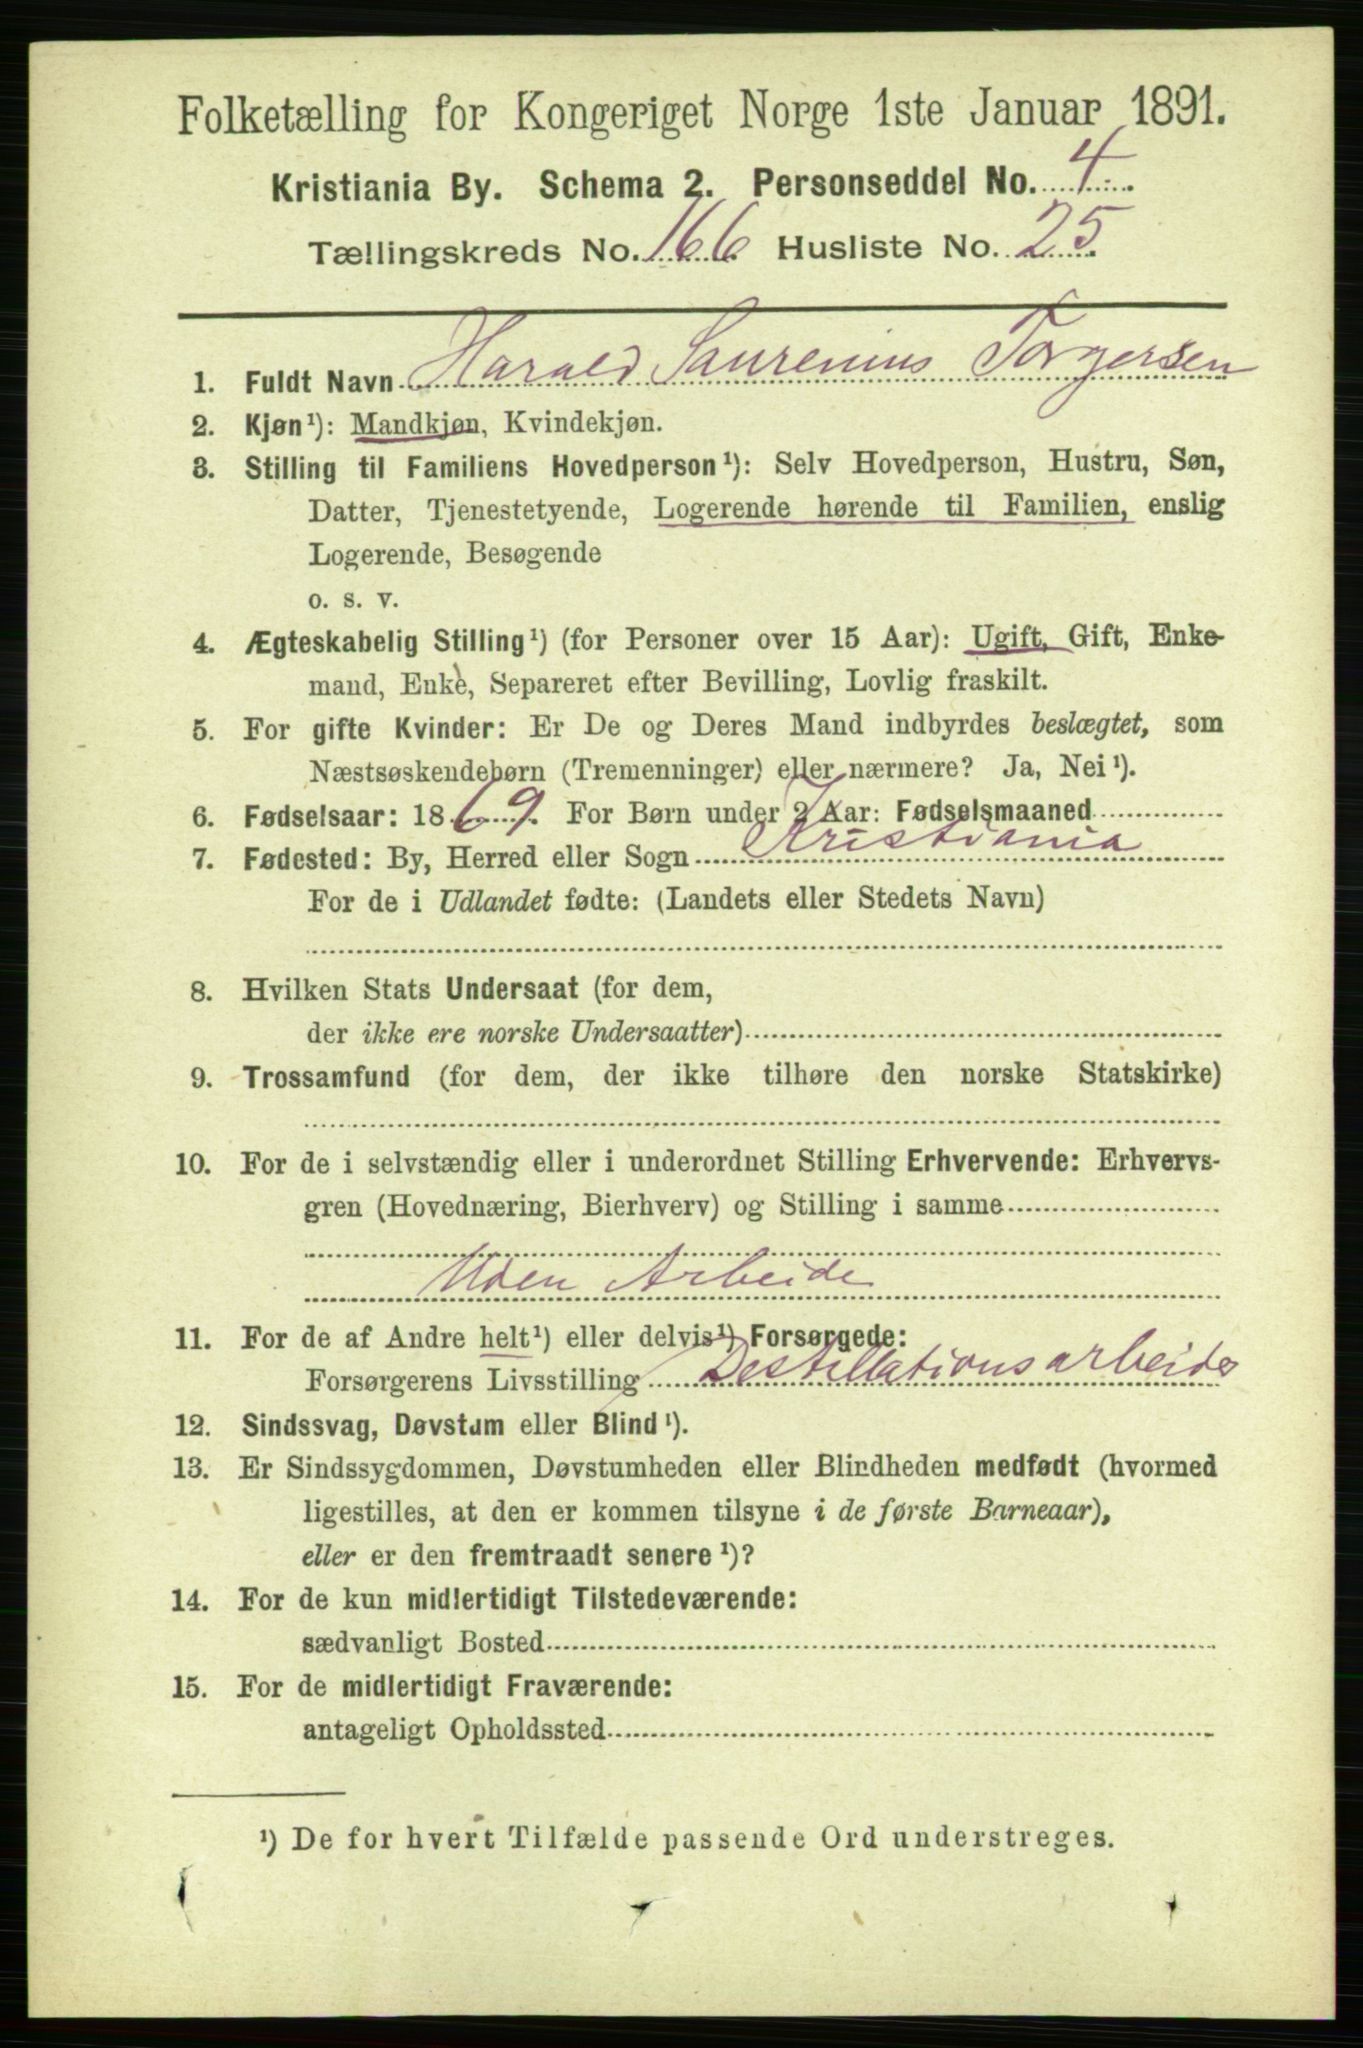 Folketælling for Kongeriget Norge 1ste Januar 1891.
Kristiania By. Schema 2. Personseddel No. 4
Tællingskreds No. 166 Husliste No. 25
1. Fuldt Navn Harald Laurenius Torgersen
2. Kjøn¹): Mandkjøn, Kvindekjøn.
3. Stilling til Familiens Hovedperson¹): Selv Hovedperson, Hustru, Søn,
Datter, Tjenestetyende, Logerende hørende til Familien, enslig
Logerende, Besøgende
o. s. v.
4. Ægteskabelig Stilling¹) (for Personer over 15 Aar): Ugift, Gift, Enke-
mand, Enke, Separeret efter Bevilling, Lovlig fraskilt.
5. For gifte Kvinder: Er De og Deres Mand indbyrdes beslægtet, som
Næstsøskendebørn (Tremenninger) eller nærmere? Ja, Nei¹).
6. Fødselsaar: 1869. For Børn under 2 Aar: Fødselsmaaned
7. Fødested: By, Herred eller Sogn Kristiania
For de i Udlandet fødte: (Landets eller Stedets Navn)
8. Hvilken Stats Undersaat (for dem,
der ikke ere norske Undersaatter)
9. Trossamfund (for dem, der ikke tilhøre den norske Statskirke)
10. For de i selvstændig eller i underordnet Stilling Erhvervende: Erhvervs-
gren (Hovednæring, Bierhverv) og Stilling i samme
Uden Arbeide
11. For de af Andre helt¹) eller delvis¹) Forsørgede:
Forsørgerens Livsstilling Destillationsarbeider
12. Sindssvag, Døvstum eller Blind¹).
13. Er Sindssygdommen, Døvstumheden eller Blindheden medfødt (hvormed
ligestilles, at den er kommen tilsyne i de første Barneaar),
eller er den fremtraadt senere¹)?
14. For de kun midlertidigt Tilstedeværende:
sædvanligt Bosted
15. For de midlertidigt Fraværende:
antageligt Opholdssted
¹) De for hvert Tilfælde passende Ord understreges.